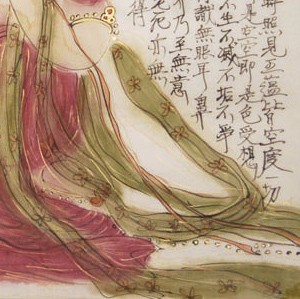 照見五蘊皆空度一切
是空空即是色受想
不生不滅不垢不淨
識無眼耳鼻
乃至無意
老死亦無
得